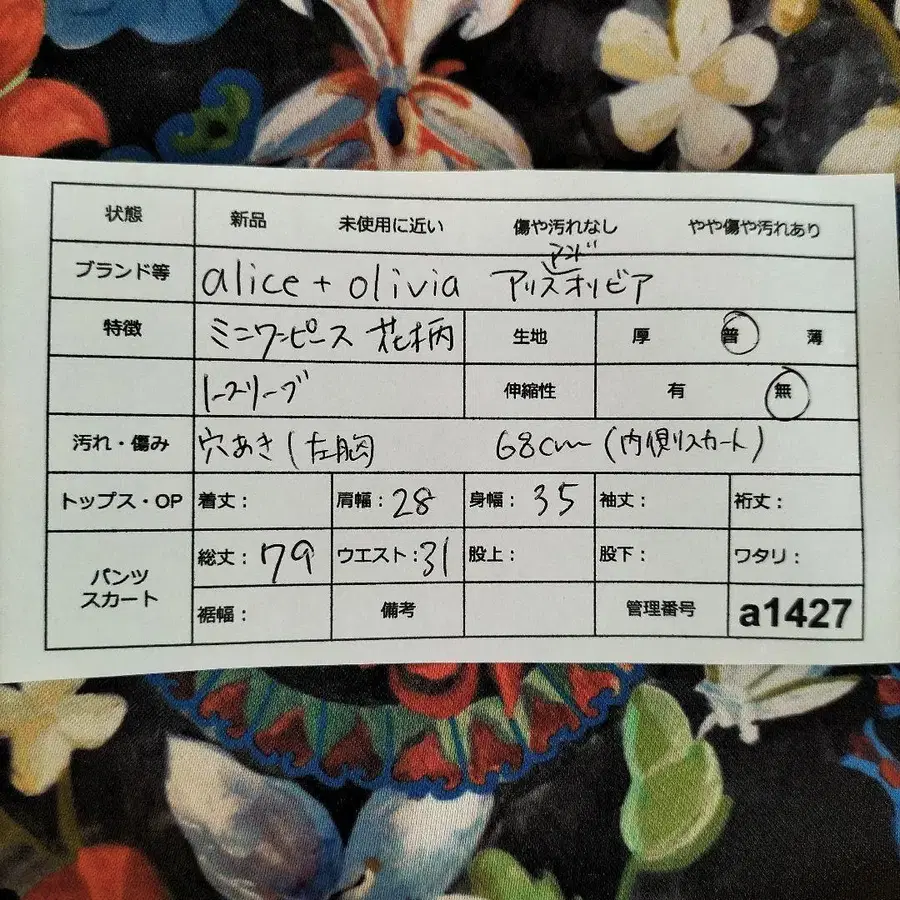 状態 新品 未使用に近い 傷や汚れなし やや傷や汚れあり
ブランド等 alice + olivia アリスアンドオリビア
特徴 ミニワンピース 花柄 生地 厚 普 薄
ノースリーブ 伸縮性 有 無
汚れ・傷み 穴あき(左胸 68cm (内側スカート)
トップス・OP 着丈: 肩幅:28 身幅:35 袖丈: 裄丈:
パンツ スカート 総丈:79 ウエスト:31 股上: 股下: ワタリ:
裾幅: 備考 管理番号 a1427